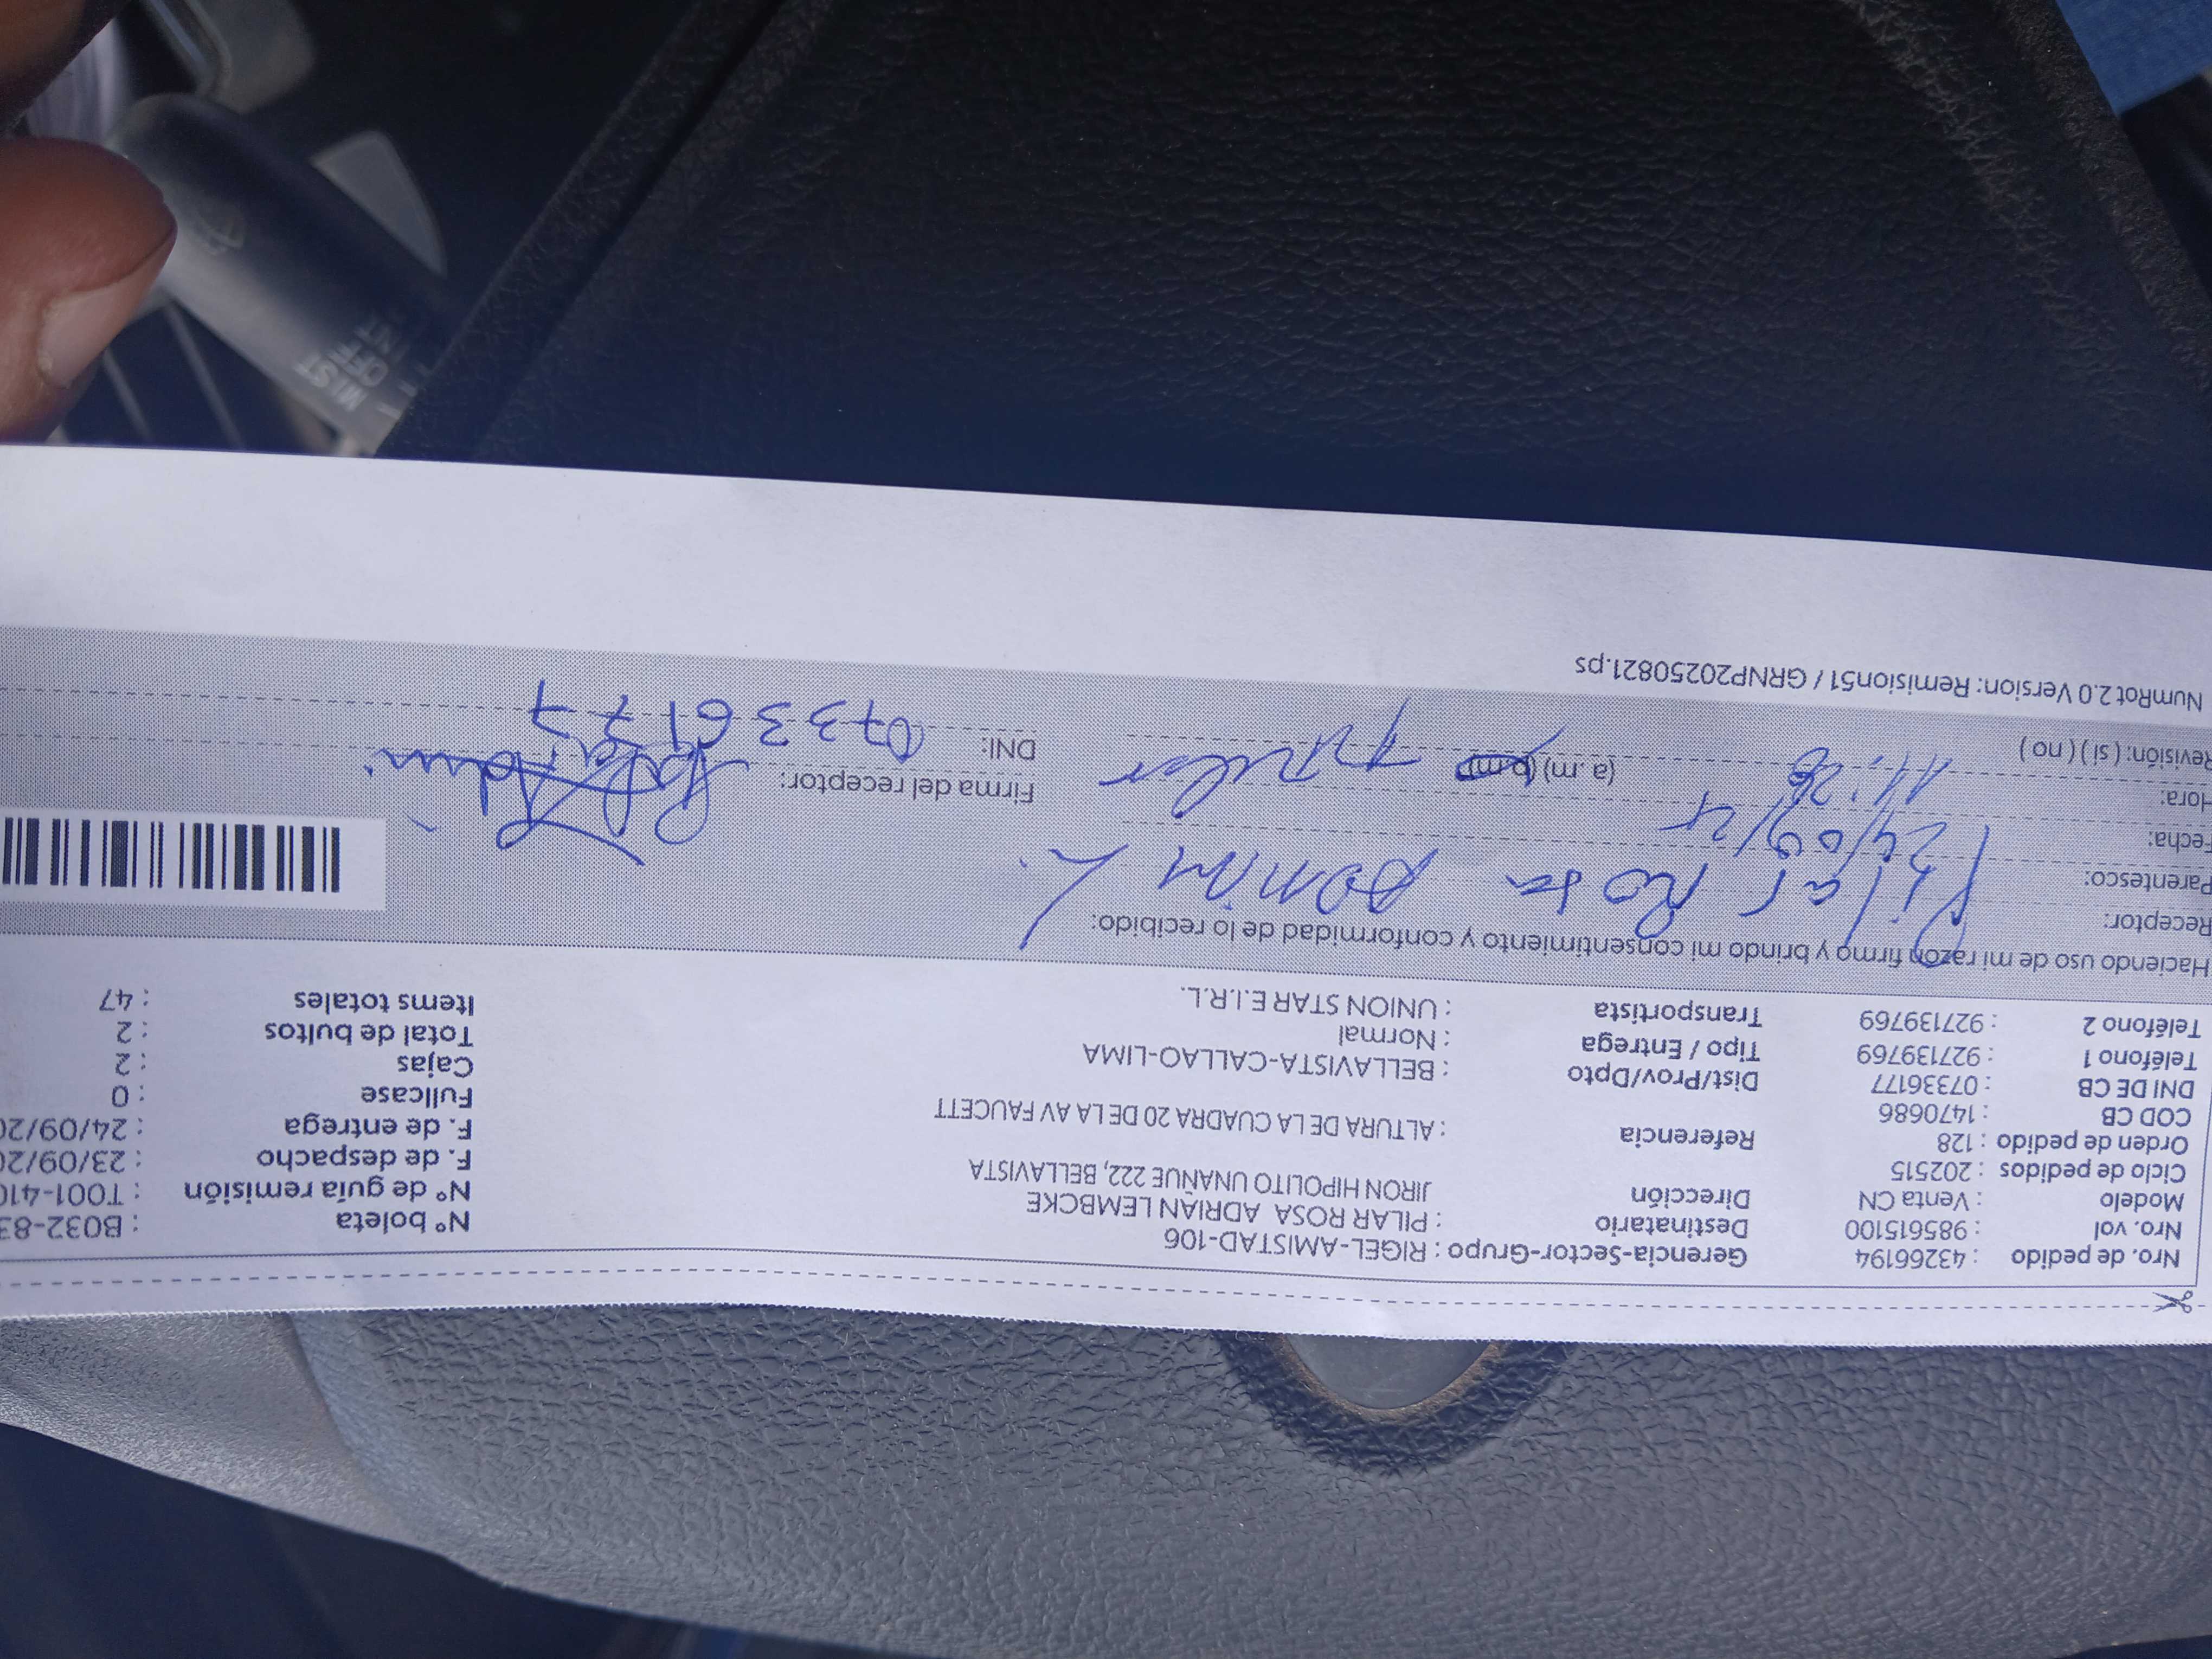 Nro. de pedido : 43266194
Nro. vol : 985615100
Modelo : Venta CN
Ciclo de pedidos : 202515
Orden de pedido : 128
COD CB : 1470686
DNI DE CB : 07336177
Teléfono 1 : 927139769
Teléfono 2 : 927139769
Gerencia-Sector-Grupo : RIGEL-AMISTAD-106
Destinatario : PILAR ROSA ADRIAN LEMBCKE
Dirección JIRON HIPOLITO UNANUE 222, BELLAVISTA
Referencia : ALTURA DE LA CUADRA 20 DE LA AV FAUCETT
Dist/Prov/Dpto : BELLAVISTA-CALLAO-LIMA
Tipo / Entrega : Normal
Transportista : UNION STAR E.I.R.L.
N° boleta : B032-83
N° de guía remisión : T001-410
F. de despacho : 23/09/20
F. de entrega : 24/09/20
Fullcase : 0
Cajas : 2
Total de bultos : 2
Items totales : 47
Haciendo uso de mi razón firmo y brindo mi consentimiento y conformidad de lo recibido:
Receptor: Pilar Rosa
Parentesco:
Fecha: 24/09/25
Hora: 11:26 (a.m) (p.m)
Revisión: ( si ) ( no )
Firma del receptor:
DNI: 07336177
NumRot 2.0 Version: Remision51 / GRNP20250821.ps
MIST
OFF
INT